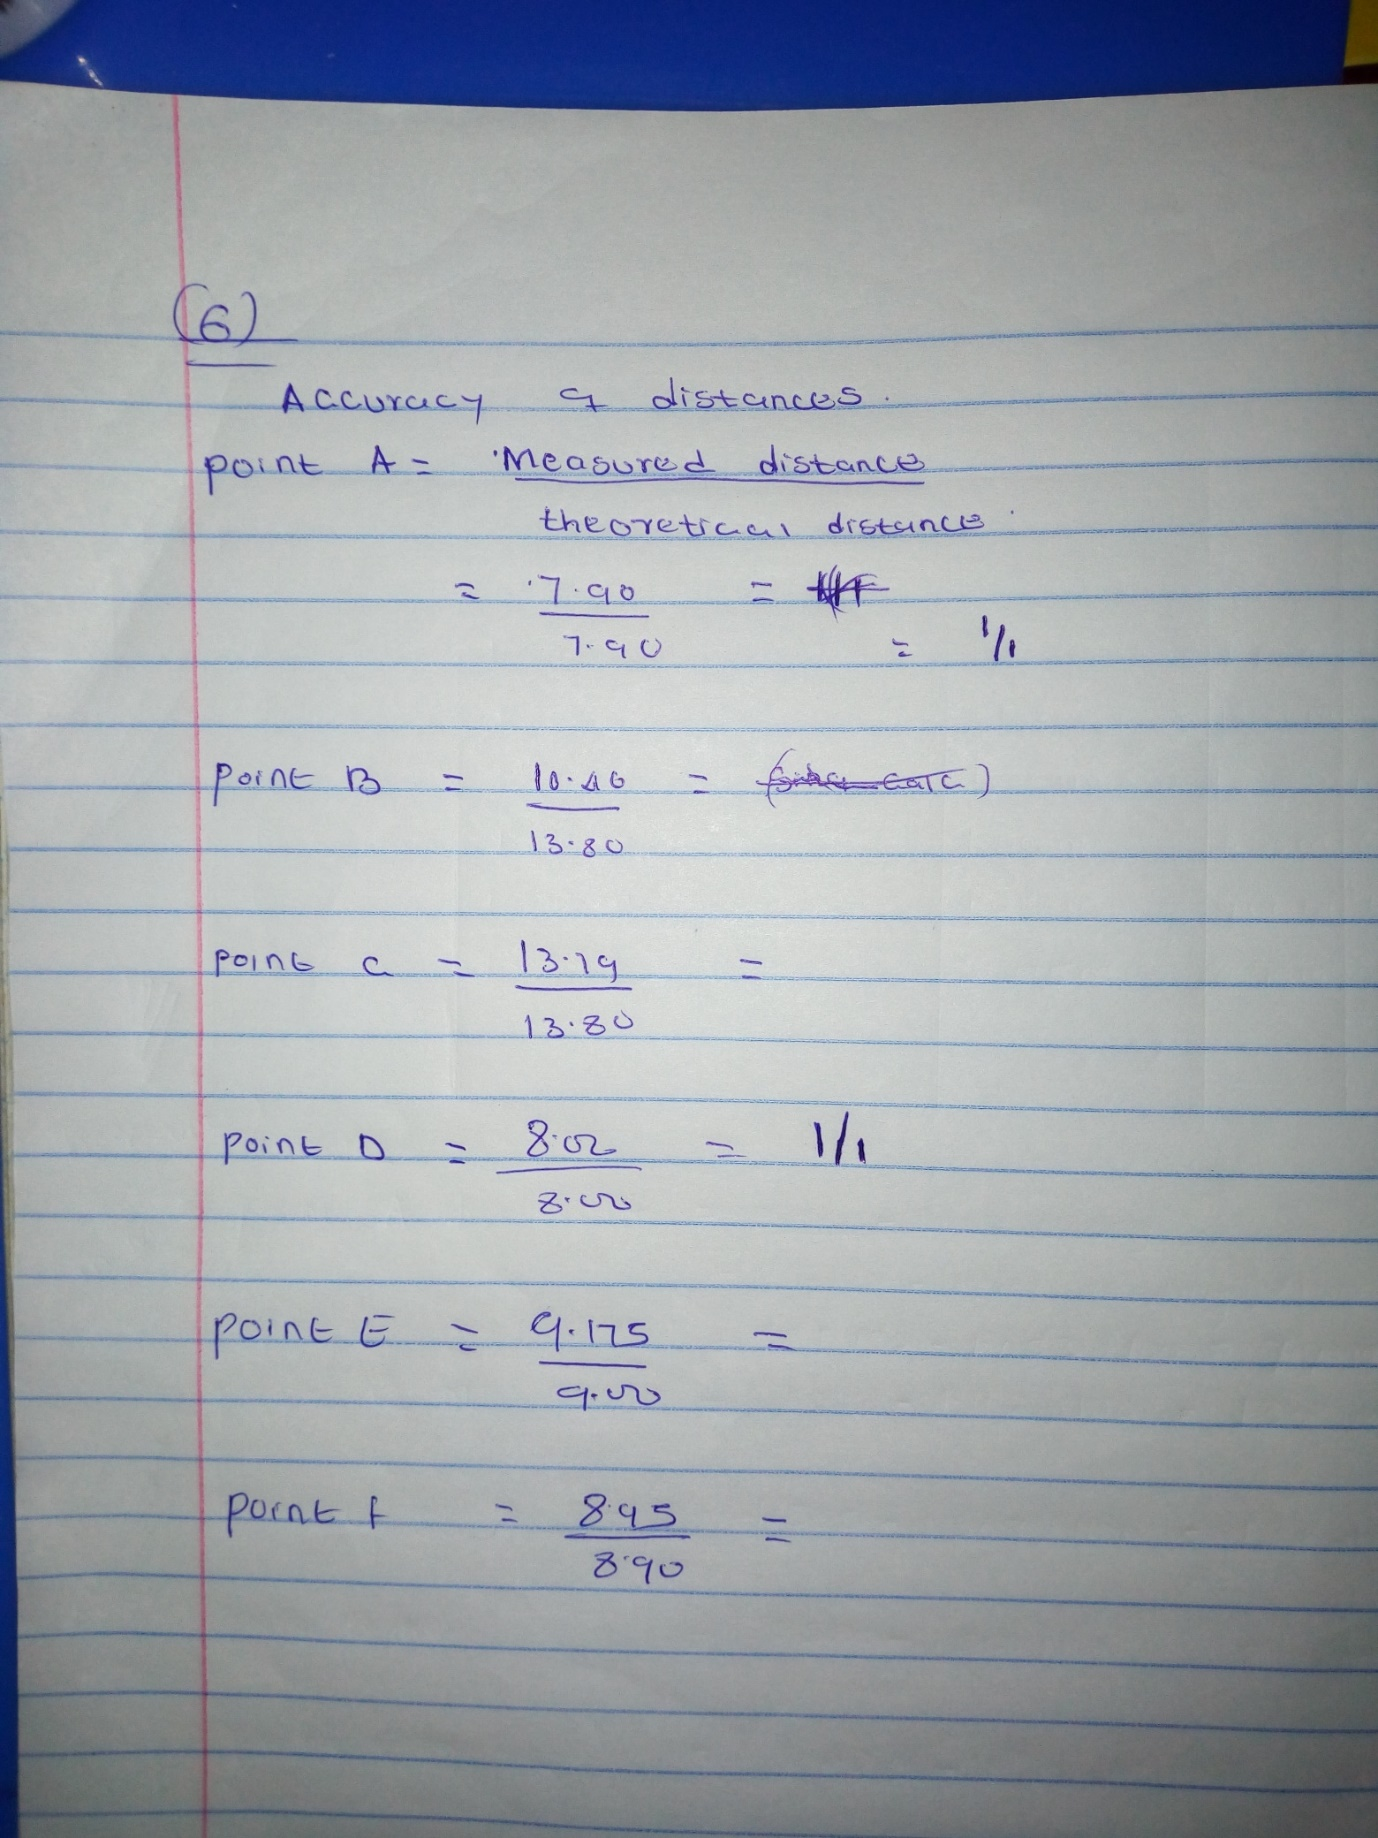 (6)
Accuracy of distances.
point A = Measured distance
theoretical distance
= 7.90 =
7.90 = 1/1
point B = 10.46 =
13.80
point C = 13.79 =
13.80
point D = 8.02 = 1/1
8.00
point E = 9.175 =
9.00
point f = 8.95 =
8.90